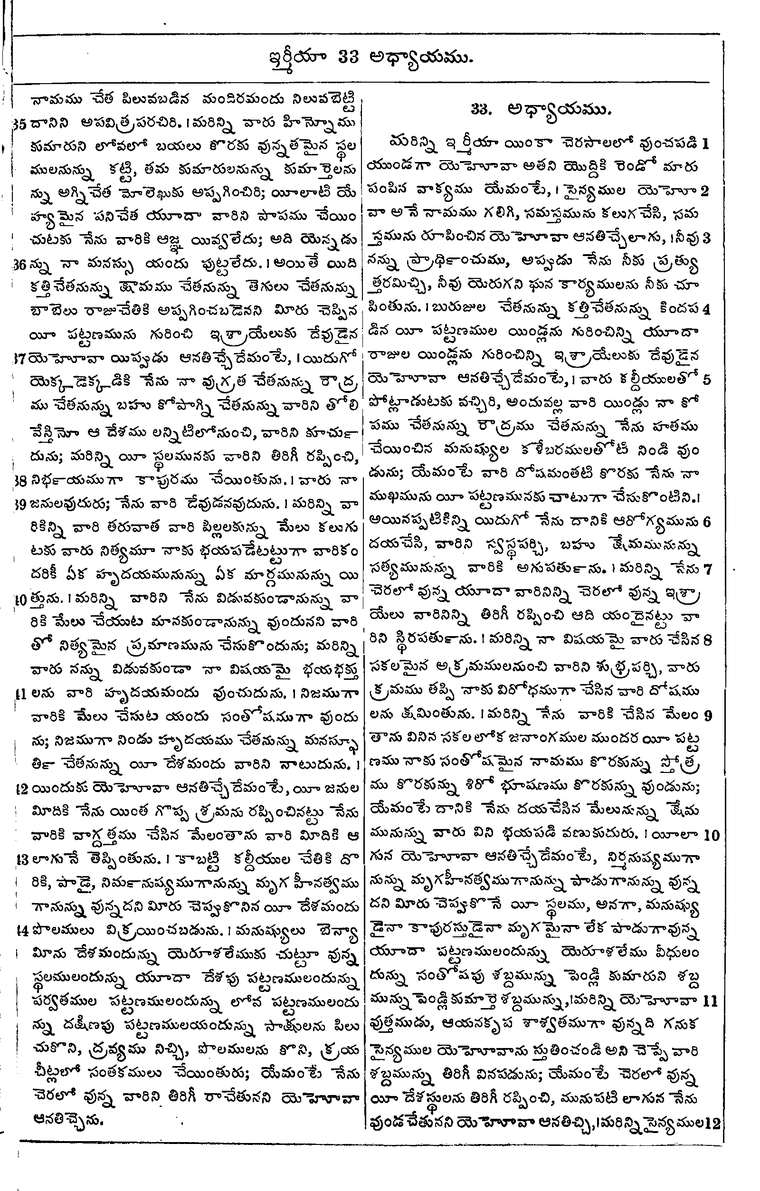 ఇర్మీయా 33 అధ్యాయము.
నామము చేత పిలువబడిన మందిరమందు నిలువబెట్టి
35 దానిని అపవిత్రపరచిరి. । మరిన్ని వారు హిన్నోము
కుమారుని లోవలో బయలు కొరకు వున్నతమైన స్థల
ములనున్ను కట్టి, తమ కుమారులనున్ను కుమార్తెలను
న్ను అగ్నిచేత మోలెఖుకు అప్పగించిరి; యీలాటి యే
హ్యమైన పనిచేత యూదా వారిని పాపము చేయిం
చుటకు నేను వారికి ఆజ్ఞ యివ్వలేదు; అది యెన్నడు
36 న్ను నా మనస్సు యందు పుట్టలేదు. । అయితే యిది
కత్తిచేతనున్ను క్షామము చేతనున్ను తెగులు చేతనున్ను
బాబెలు రాజుచేతికి అప్పగించబడెనని మీరు చెప్పిన
యీ పట్టణమును గురించి ఇశ్రాయేలుకు దేవుడైన
37 యెహోవా యిప్పుడు ఆనతిచ్చేదేమంటే, । యిదుగో
యెక్కడెక్కడికి నేను నా వుగ్రత చేతనున్ను రౌద్ర
ము చేతనున్ను బహు కోపాగ్ని చేతనున్ను వారిని తోలి
వేస్తినో ఆ దేశము లన్నిటిలోనుంచి, వారిని కూర్చు
దును; మరిన్ని యీ స్థలమునకు వారిని తిరిగీ రప్పించి,
38 నిర్భయముగా కాపురము చేయింతును. । వారు నా
39 జనులవుదురు; నేను వారి దేవుడనవుదును. । మరిన్ని వా
రికిన్ని వారి తరువాత వారి పిల్లలకున్ను మేలు కలుగు
టకు వారు నిత్యమూ నాకు భయపడేటట్టుగా వారికం
దరికీ ఏక హృదయమునున్ను ఏక మార్గమునున్ను యి
40 త్తును. । మరిన్ని వారిని నేను విడువకుండానున్ను వా
రికి మేలు చేయుట మానకుండానున్ను వుందునని వారి
తో నిత్యమైన ప్రమాణమును చేసుకొందును; మరిన్ని
వారు నన్ను విడువకుండా నా విషయమై భయభక్తు
41 లను వారి హృదయమందు వుంచుదును. । నిజముగా
వారికి మేలు చేసుట యందు సంతోషముగా వుందు
ను; నిజముగా నిండు హృదయము చేతనున్ను మనస్ఫూ
ర్తి చేతనున్ను యీ దేశమందు వారిని నాటుదును. ।
42 యిందుకు యెహోవా ఆనతిచ్చేదేమంటే, యీ జనుల
మీదికి నేను యింత గొప్ప శ్రమను రప్పించినట్టు నేను
వారికి వాగ్దత్తము చేసిన మేలంతాను వారి మీదికి ఆ
43 లాగునే తెప్పింతును. । కాబట్టి కల్దీయుల చేతికి దొ
రికి, పాడై, నిర్మానుష్యముగానున్ను మృగ హీనత్వము
గానున్ను వున్నదని మీరు చెప్పుకొనిన యీ దేశమందు
44 పొలములు విక్రయించబడును. । మనుష్యులు బెన్యా
మీను దేశమందున్ను యెరూశలేముకు చుట్టూ వున్న
స్థలములందున్ను యూదా దేశపు పట్టణములందున్ను
పర్వతముల పట్టణములందున్ను లోవ పట్టణములందు
న్ను దక్షిణపు పట్టణములయందున్ను సాక్షులను పిలు
చుకొని, ద్రవ్యము నిచ్చి, పొలములను కొని, క్రయ
చీట్లలో సంతకములు చేయింతురు; యేమంటే నేను
చెరలో వున్న వారిని తిరిగీ రాచేతునని యెహోవా
ఆనతిచ్చెను.
33. అధ్యాయము.
మరిన్ని ఇర్మీయా యింకా చెరసాలలో వుంచపడి 1
యుండగా యెహోవా అతని యొద్దికి రెండో మారు
పంపిన వాక్యము యేమంటే, । సైన్యముల యెహో 2
వా అనే నామము గలిగి, సమస్తమును కలుగచేసి, సమ
స్తమును రూపించిన యెహోవా ఆనతిచ్చేలాగు, । నీవు 3
నన్ను ప్రార్థించుము, అప్పుడు నేను నీకు ప్రత్యు
త్తరమిచ్చి, నీవు యెరుగని ఘన కార్యములను నీకు చూ
పింతును. । బురుజుల చేతనున్ను కత్తిచేతనున్ను కిందప 4
డిన యీ పట్టణముల యిండ్లను గురించిన్ని యూదా
రాజుల యిండ్లను గురించిన్ని ఇశ్రాయేలుకు దేవుడైన
యెహోవా ఆనతిచ్చేదేమంటే, । వారు కల్దీయులతో 5
పోట్లాడుటకు వచ్చిరి, అందువల్ల వారి యిండ్లు నా కో
పము చేతనున్ను రౌద్రము చేతనున్ను నేను హతము
చేయించిన మనుష్యుల కళేబరములతోటి నిండి వుం
డును; యేమంటే వారి దోషమంతటి కొరకు నేను నా
ముఖమును యీ పట్టణమునకు చాటుగా చేసుకొంటిని. ।
అయినప్పటికిన్ని యిదుగో నేను దానికి ఆరోగ్యమును 6
దయచేసి, వారిని స్వస్థపర్చి, బహు క్షేమమునున్ను
సత్యమునున్ను వారికి అగుపర్తును. । మరిన్ని నేను 7
చెరలో వున్న యూదా వారినిన్ని చెరలో వున్న ఇశ్రా
యేలు వారినిన్ని తిరిగీ రప్పించి ఆది యందైనట్టు వా
రిని స్థిరపర్తును. । మరిన్ని నా విషయమై వారు చేసిన 8
సకలమైన అక్రమములనుంచి వారిని శుభ్రపర్చి, వారు
క్రమము తప్పి నాకు విరోధముగా చేసిన వారి దోషము
లను క్షమింతును. । మరిన్ని నేను వారికి చేసిన మేలం 9
తాను వినిన సకలలోక జనాంగముల ముందర యీ పట్ట
ణము నాకు సంతోషమైన నామము కొరకున్ను స్తోత్ర
ము కొరకున్ను శిరో భూషణము కొరకున్ను వుండును;
యేమంటే దానికి నేను దయచేసిన మేలునున్ను క్షేమ
మునున్ను వారు విని భయపడి వణుకుదురు. । యీలా 10
గున యెహోవా ఆనతిచ్చేదేమంటే, నిర్మనుష్యముగా
నున్ను మృగహీనత్వముగానున్ను పాడుగానున్ను వున్న
దని మీరు చెప్పుకొనే యీ స్థలము, అనగా, మనుష్యు
డైనా కాపురస్తుడైనా మృగమైనా లేక పాడుగావున్న
యూదా పట్టణములందున్ను యెరూశలేము వీధులం
దున్ను సంతోషపు శబ్దమున్ను పెండ్లి కుమారుని శబ్ద
మున్ను పెండ్లికుమార్తె శబ్దమున్ను, । మరిన్ని యెహోవా 11
వుత్తముడు, ఆయనకృప శాశ్వతముగా వున్నది గనుక
సైన్యముల యెహోవాను స్తుతించండి అని చెప్పే వారి
శబ్దమున్ను తిరిగీ వినపడును; యేమంటే చెరలో వున్న
యీ దేశస్థులను తిరిగీ రప్పించి, మునుపటి లాగున నేను
వుండచేతునని యెహోవా ఆనతిచ్చి, । మరిన్ని సైన్యముల 12